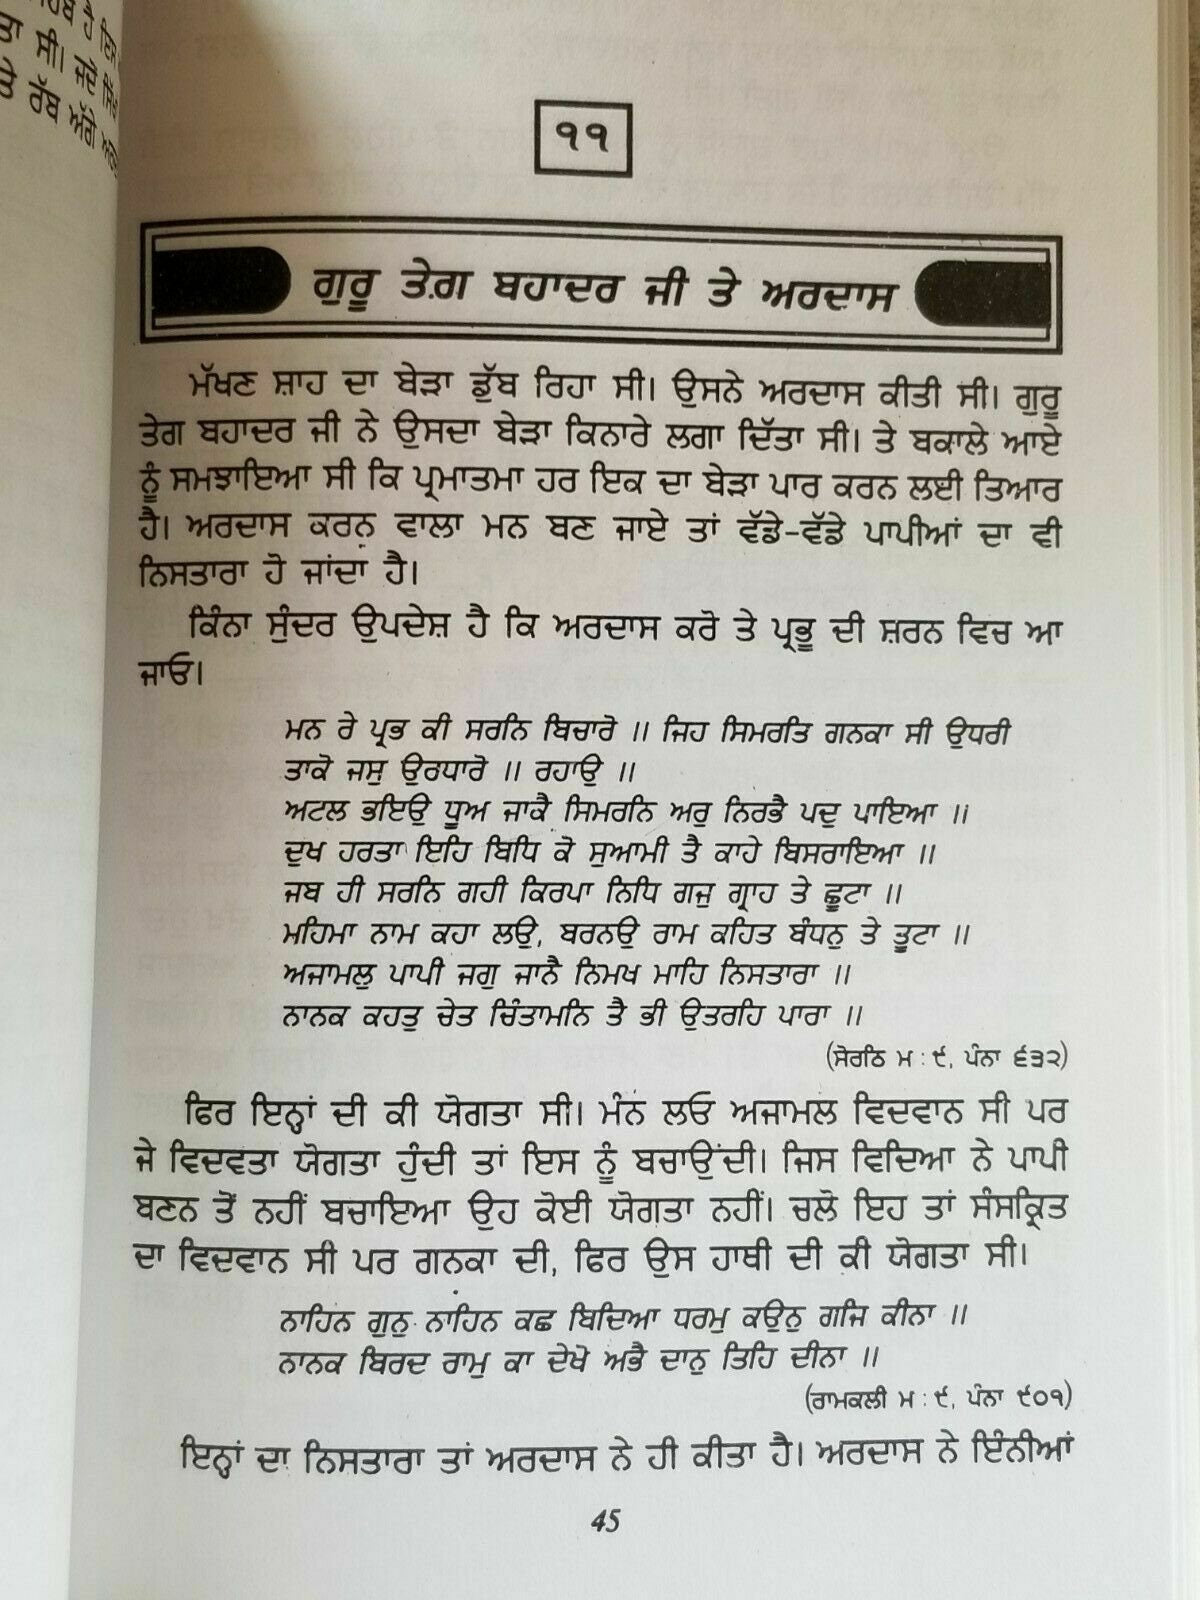 ੧੧
ਗੁਰੂ ਤੇਗ਼ ਬਹਾਦਰ ਜੀ ਤੇ ਅਰਦਾਸ
ਮੱਖਣ ਸ਼ਾਹ ਦਾ ਬੇੜਾ ਡੁੱਬ ਰਿਹਾ ਸੀ। ਉਸਨੇ ਅਰਦਾਸ ਕੀਤੀ ਸੀ। ਗੁਰੂ
ਤੇਗ ਬਹਾਦਰ ਜੀ ਨੇ ਉਸਦਾ ਬੇੜਾ ਕਿਨਾਰੇ ਲਗਾ ਦਿੱਤਾ ਸੀ। ਤੇ ਬਕਾਲੇ ਆਏ
ਨੂੰ ਸਮਝਾਇਆ ਸੀ ਕਿ ਪ੍ਰਮਾਤਮਾ ਹਰ ਇਕ ਦਾ ਬੇੜਾ ਪਾਰ ਕਰਨ ਲਈ ਤਿਆਰ
ਹੈ। ਅਰਦਾਸ ਕਰਨ ਵਾਲਾ ਮਨ ਬਣ ਜਾਏ ਤਾਂ ਵੱਡੇ-ਵੱਡੇ ਪਾਪੀਆਂ ਦਾ ਵੀ
ਨਿਸਤਾਰਾ ਹੋ ਜਾਂਦਾ ਹੈ।
ਕਿੰਨਾ ਸੁੰਦਰ ਉਪਦੇਸ਼ ਹੈ ਕਿ ਅਰਦਾਸ ਕਰੋ ਤੇ ਪ੍ਰਭੂ ਦੀ ਸ਼ਰਨ ਵਿਚ ਆ
ਜਾਓ।
ਮਨ ਰੇ ਪ੍ਰਭ ਕੀ ਸਰਨਿ ਬਿਚਾਰੋ ॥ ਜਿਹ ਸਿਮਰਤਿ ਗਨਕਾ ਸੀ ਉਧਰੀ
ਤਾਕੋ ਜਸੁ ਉਰਧਾਰੋ ॥ ਰਹਾਉ ॥
ਅਟਲ ਭਇਉ ਧੂਅ ਜਾਕੈ ਸਿਮਰਨਿ ਅਰੁ ਨਿਰਭੈ ਪਦੁ ਪਾਇਆ ॥
ਦੁਖ ਹਰਤਾ ਇਹਿ ਬਿਧਿ ਕੋ ਸੁਆਮੀ ਤੈ ਕਾਹੇ ਬਿਸਰਾਇਆ ॥
ਜਬ ਹੀ ਸਰਨਿ ਗਹੀ ਕਿਰਪਾ ਨਿਧਿ ਗਜੁ ਗ੍ਰਾਹ ਤੇ ਛੂਟਾ ॥
ਮਹਿਮਾ ਨਾਮ ਕਹਾ ਲਉ, ਬਰਨਉ ਰਾਮ ਕਹਿਤ ਬੰਧਨੁ ਤੇ ਤੂਟਾ ॥
ਅਜਾਮਲੁ ਪਾਪੀ ਜਗੁ ਜਾਨੈ ਨਿਮਖ ਮਾਹਿ ਨਿਸਤਾਰਾ ॥
ਨਾਨਕ ਕਹਤੁ ਚੇਤ ਚਿੰਤਾਮਨਿ ਤੈ ਭੀ ਉਤਰਹਿ ਪਾਰਾ ॥
(ਸੋਰਠਿ ਮ : ੯, ਪੰਨਾ ੬੩੨)
ਫਿਰ ਇਨ੍ਹਾਂ ਦੀ ਕੀ ਯੋਗਤਾ ਸੀ। ਮੰਨ ਲਓ ਅਜਾਮਲ ਵਿਦਵਾਨ ਸੀ ਪਰ
ਜੇ ਵਿਦਵਤਾ ਯੋਗਤਾ ਹੁੰਦੀ ਤਾਂ ਇਸ ਨੂੰ ਬਚਾਉਂਦੀ। ਜਿਸ ਵਿਦਿਆ ਨੇ ਪਾਪੀ
ਬਣਨ ਤੋਂ ਨਹੀਂ ਬਚਾਇਆ ਉਹ ਕੋਈ ਯੋਗਤਾ ਨਹੀਂ। ਚਲੋ ਇਹ ਤਾਂ ਸੰਸਕ੍ਰਿਤ
ਦਾ ਵਿਦਵਾਨ ਸੀ ਪਰ ਗਨਕਾ ਦੀ, ਫਿਰ ਉਸ ਹਾਥੀ ਦੀ ਕੀ ਯੋਗਤਾ ਸੀ।
ਨਾਹਿਨ ਗੁਨੁ ਨਾਹਿਨ ਕਛ ਬਿਦਿਆ ਧਰਮੁ ਕਉਨੁ ਗਜਿ ਕੀਨਾ ॥
ਨਾਨਕ ਬਿਰਦ ਰਾਮੁ ਕਾ ਦੇਖੋ ਅਭੈ ਦਾਨੁ ਤਿਹਿ ਦੀਨਾ ॥
(ਰਾਮਕਲੀ ਮ : ੯, ਪੰਨਾ ੯੦੧)
ਇਨ੍ਹਾਂ ਦਾ ਨਿਸਤਾਰਾ ਤਾਂ ਅਰਦਾਸ ਨੇ ਹੀ ਕੀਤਾ ਹੈ। ਅਰਦਾਸ ਨੇ ਇੰਨੀਆਂ
45
ਹੈ ਇਸ
ਤਾ ਸੀ। ਜਦੋਂ ਸਿੱਖ
ਤੇ ਰੱਬ ਅੱਗੇ